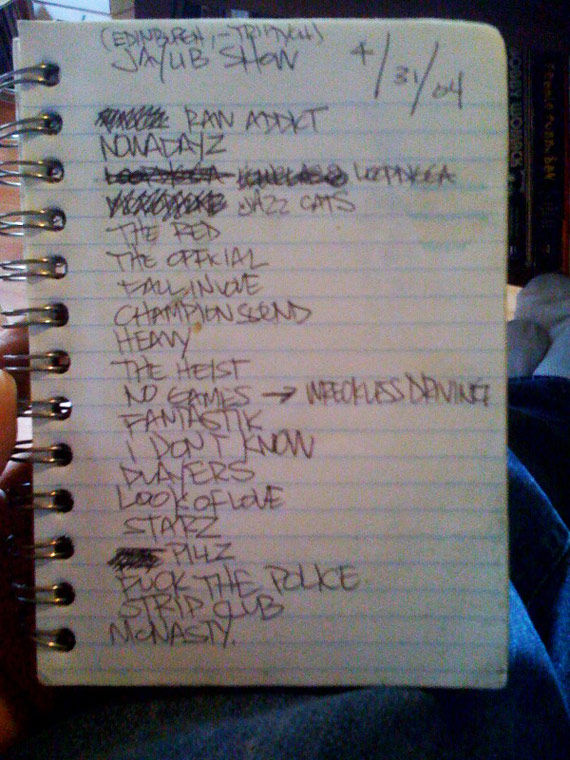 (EDINBURGH,-TRIANGLE)
JAYLIB SHOW 4/31/04
RAW ADDICT
NOWADAYZ
LOOPDIGGA
JAZZ CATS
THE RED
THE OFFICIAL
FALL IN LOVE
CHAMPION SOUND
HEAVY
THE HEIST
NO GAMES → WRECKLESS DRIVING
FANTASTIK
I DON'T KNOW
PLAYERS
LOOK OF LOVE
STARZ
PILLZ
FUCK THE POLICE
STRIP CLUB
MCNASTY.